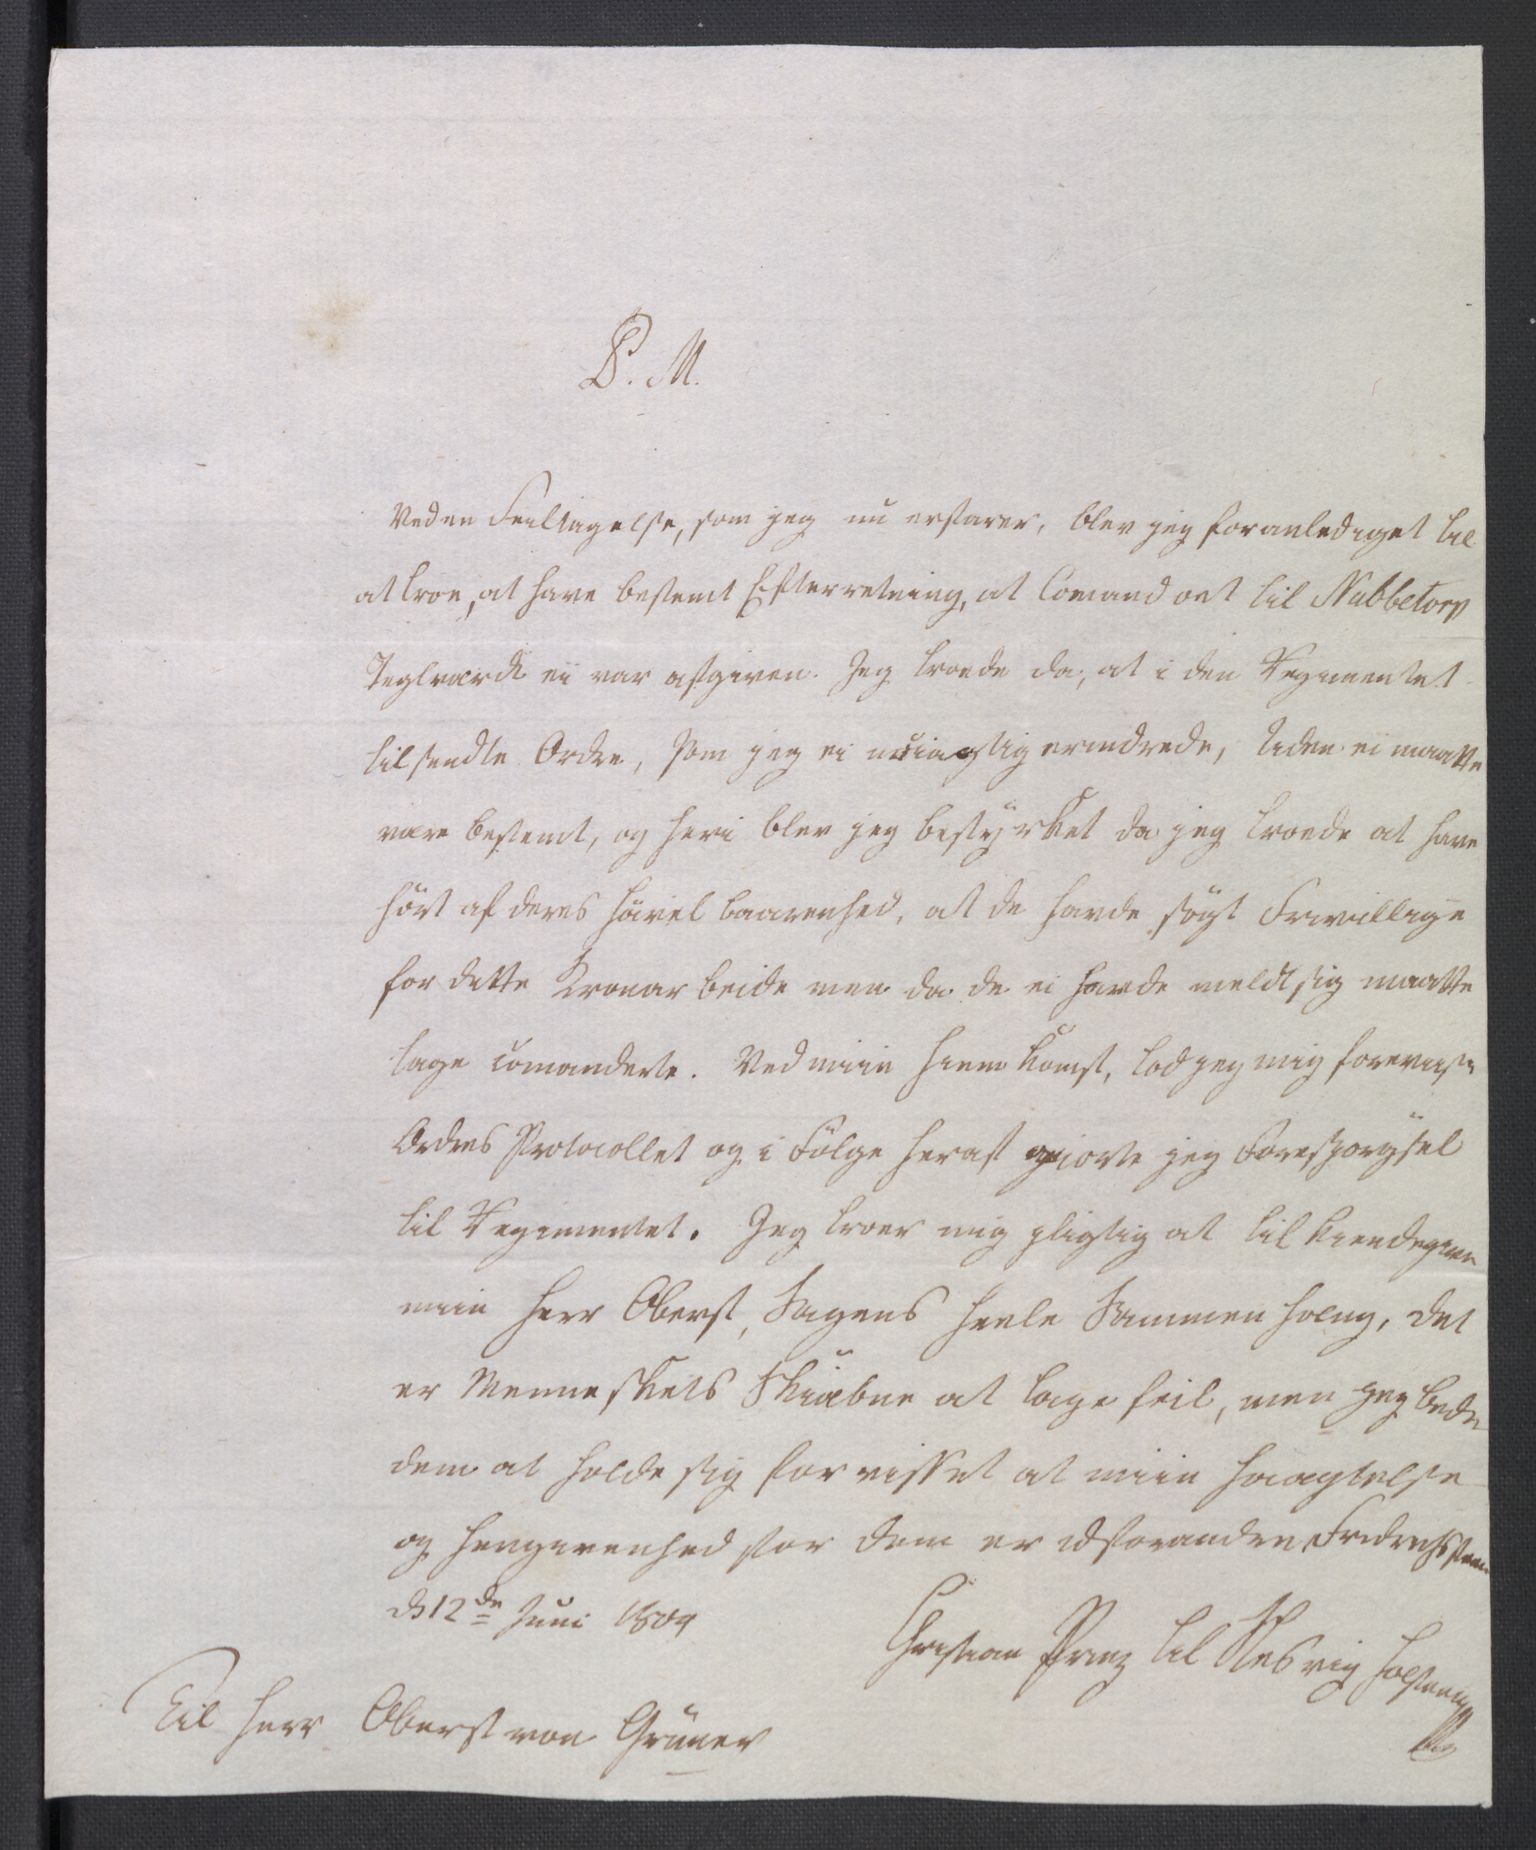 P. M.
Ved en Feiltagelse, som jeg nu erfarer, blev jeg foranlediget til
at troe, at have bestemt Efterretning, at Comandoet til Nabbetorp
Teglværk ei var afgiven. Jeg troede da, at i den Regimentet
tilsendte Ordre, som jeg ei nöiagtig erindrede, tiden ei maatte
være bestemt, og heri blev jeg bestyrket da jeg troede at have
hört af deres Höivelbaarenhed, at de havde sögt Frivillige
for dette Kronarbeide men da de ei havde meldt sig maatte
tage comanderte. Ved miin Hiemkomst, lod jeg mig foreviise
Ordres Protocollet og i Fölge heraf giorte jeg Forespørgsel
til Regimentet. Jeg troer mig pligtig at tilkiendegive
miin Herr Oberst, Sagens heele Sammenhæng, det
er Menneskets Skiäbne at tage feil, men jeg beder
dem at holde sig forvisset at miin Høiagtelse
og Hengivenhed for dem er uforandre Fredrichssteen
d 12de Juni 1804
Christian Prinz til Slesvig Holsteen
Til Herr Oberst von Grüner